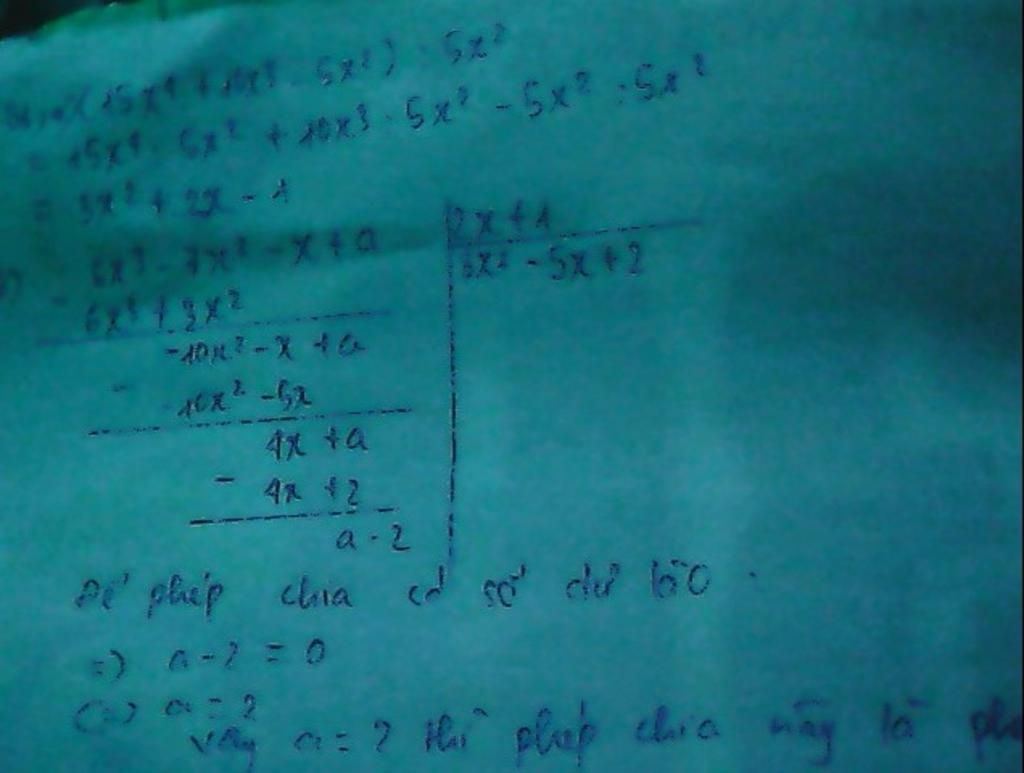 (15x⁴ + 10x³ - 5x²) : 5x²
= 15x⁴ : 5x² + 10x³ : 5x² - 5x² : 5x²
= 3x² + 2x - 1
6x³ - 7x² - x + a
2x + 1
- 6x³ + 3x²
3x² - 5x + 2
-10x² - x + a
- -10x² - 5x
4x + a
- 4x + 2
a - 2
Để phép chia có số dư là 0
=) a - 2 = 0
(=) a = 2
Vậy a = 2 thì phép chia này là